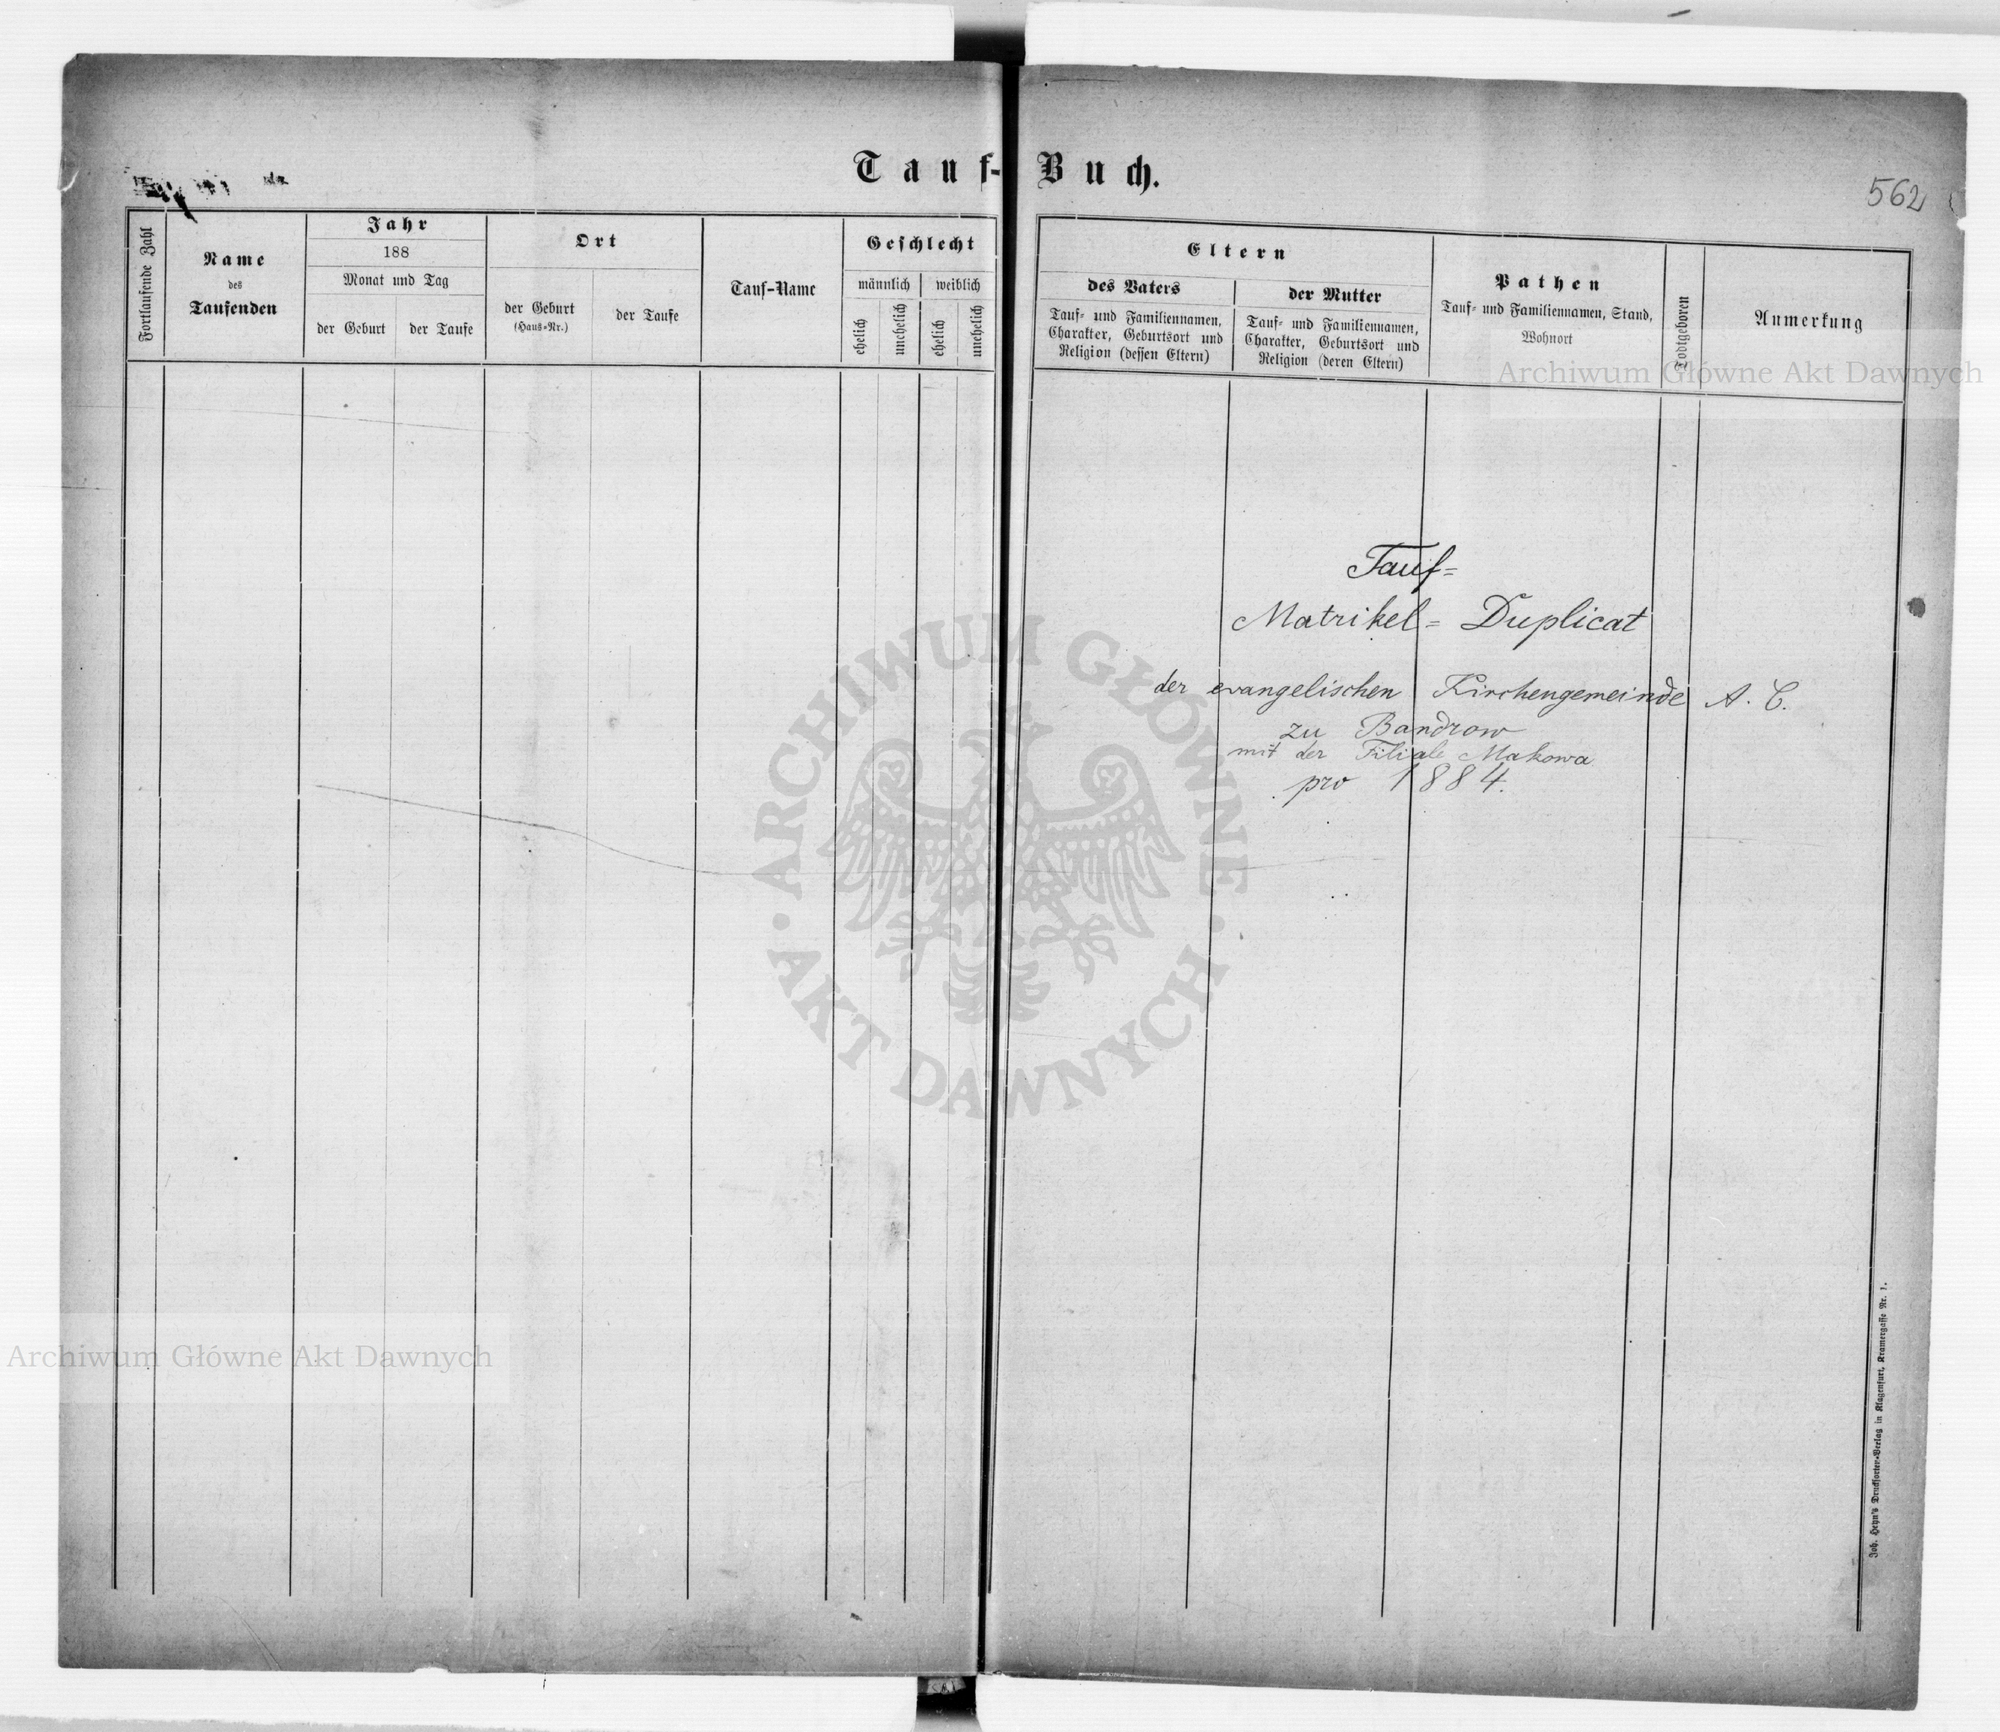 Tauf-Buch.
562
Fortlaufende Zahl
Name
des
Taufenden
Jahr
188
Monat und Tag
der Geburt
der Taufe
Ort
der Geburt
(Haus-Nr.)
der Taufe
Tauf-Name
Geschlecht
männlich
weiblich
ehelich
unehelich
ehelich
unehelich
Eltern
des Vaters
Tauf- und Familiennamen,
Charakter, Geburtsort und
Religion (dessen Eltern)
der Mutter
Tauf- und Familiennamen,
Charakter, Geburtsort und
Religion (deren Eltern)
Pathen
Tauf- und Familiennamen, Stand,
Wohnort
Todtgeboren
Anmerkung
Archiwum Główne Akt Dawnych
Tauf=
Matrikel= Duplicat
der evangelischen Kirchengemeinde A. C.
zu Bandrow
mit der Filiale Makowa
pro 1884.
ARCHIWUM GŁÓWNE · AKT DAWNYCH ·
Archiwum Główne Akt Dawnych
Joh. Heyn's Drucksorten-Verlag in Klagenfurt, Kramergasse Nr. 1.